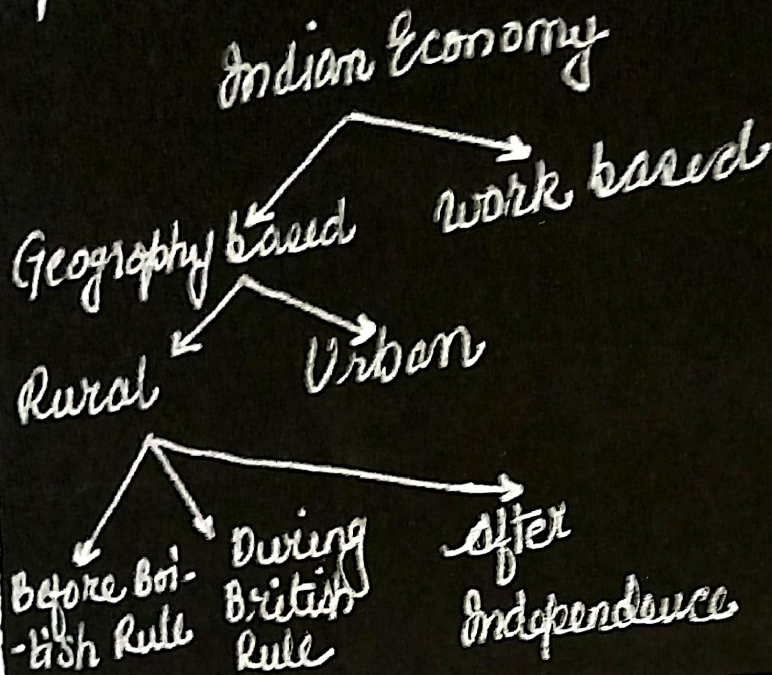 Indian Economy
Geography based
work based
Rural
Urban
Before Bri-
-tish Rule
During
British
Rule
After
Independence